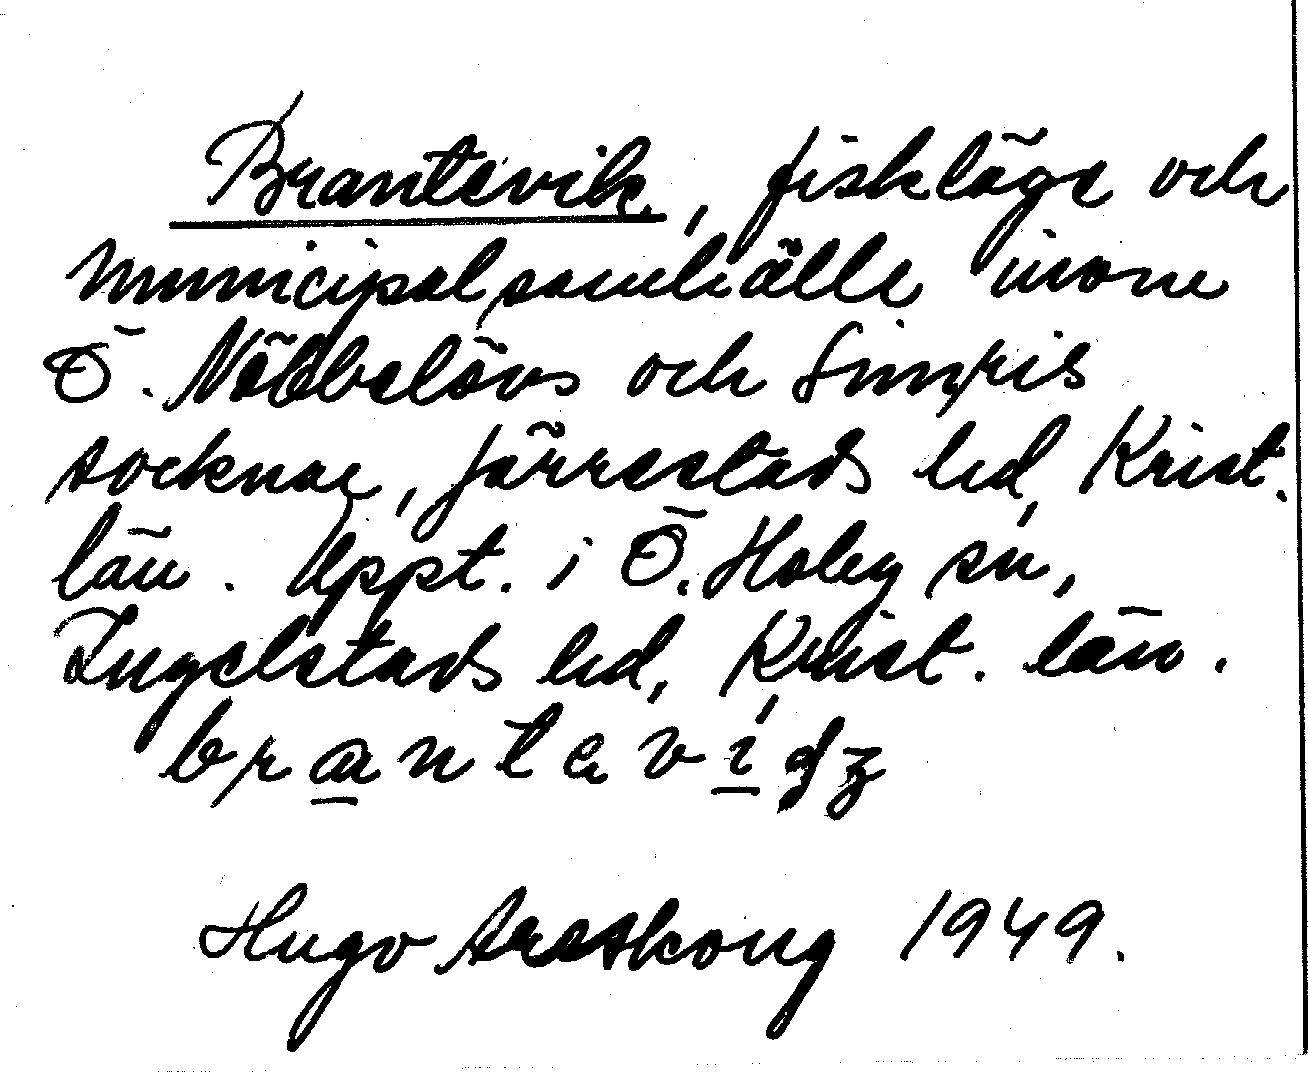 Brantevik, fiskläge och
municipalsamhälle inom
Ö. Nöbbelövs och Simris
socknar, Järrestads hd, Krist.
län. Uppt. i Ö. Hoby sn,
Ingelstads hd, Krist. län.
brantevi
Hugo Areskoug 1949.